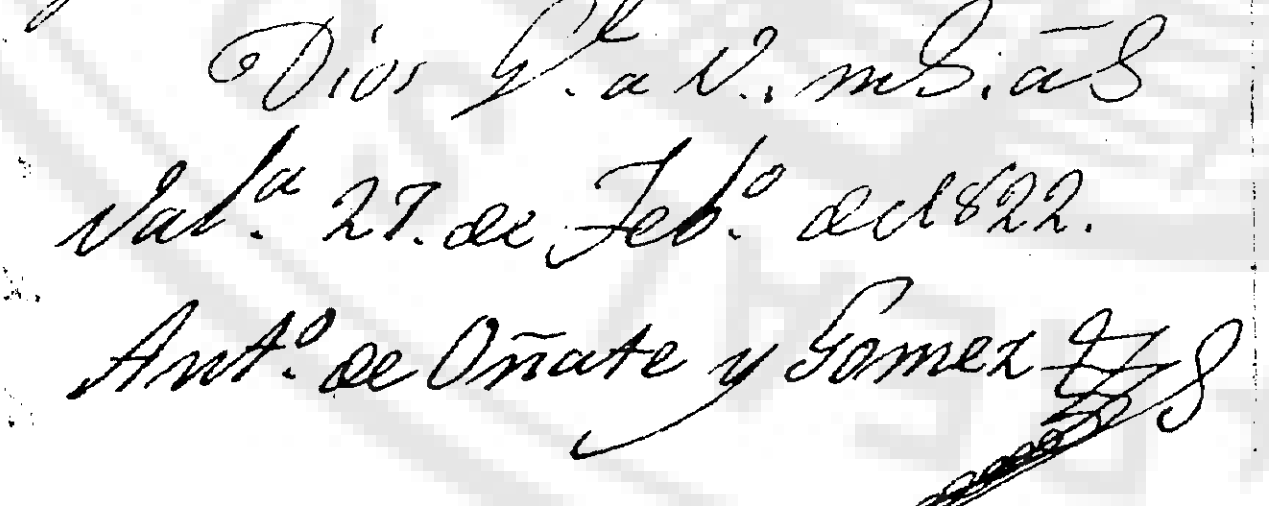 Dios G.ᵉ a V. m.ˢ a.ˢ
Val.ª 27. de Feb.º de 1822.
Ant.º de Oñate y Gomez